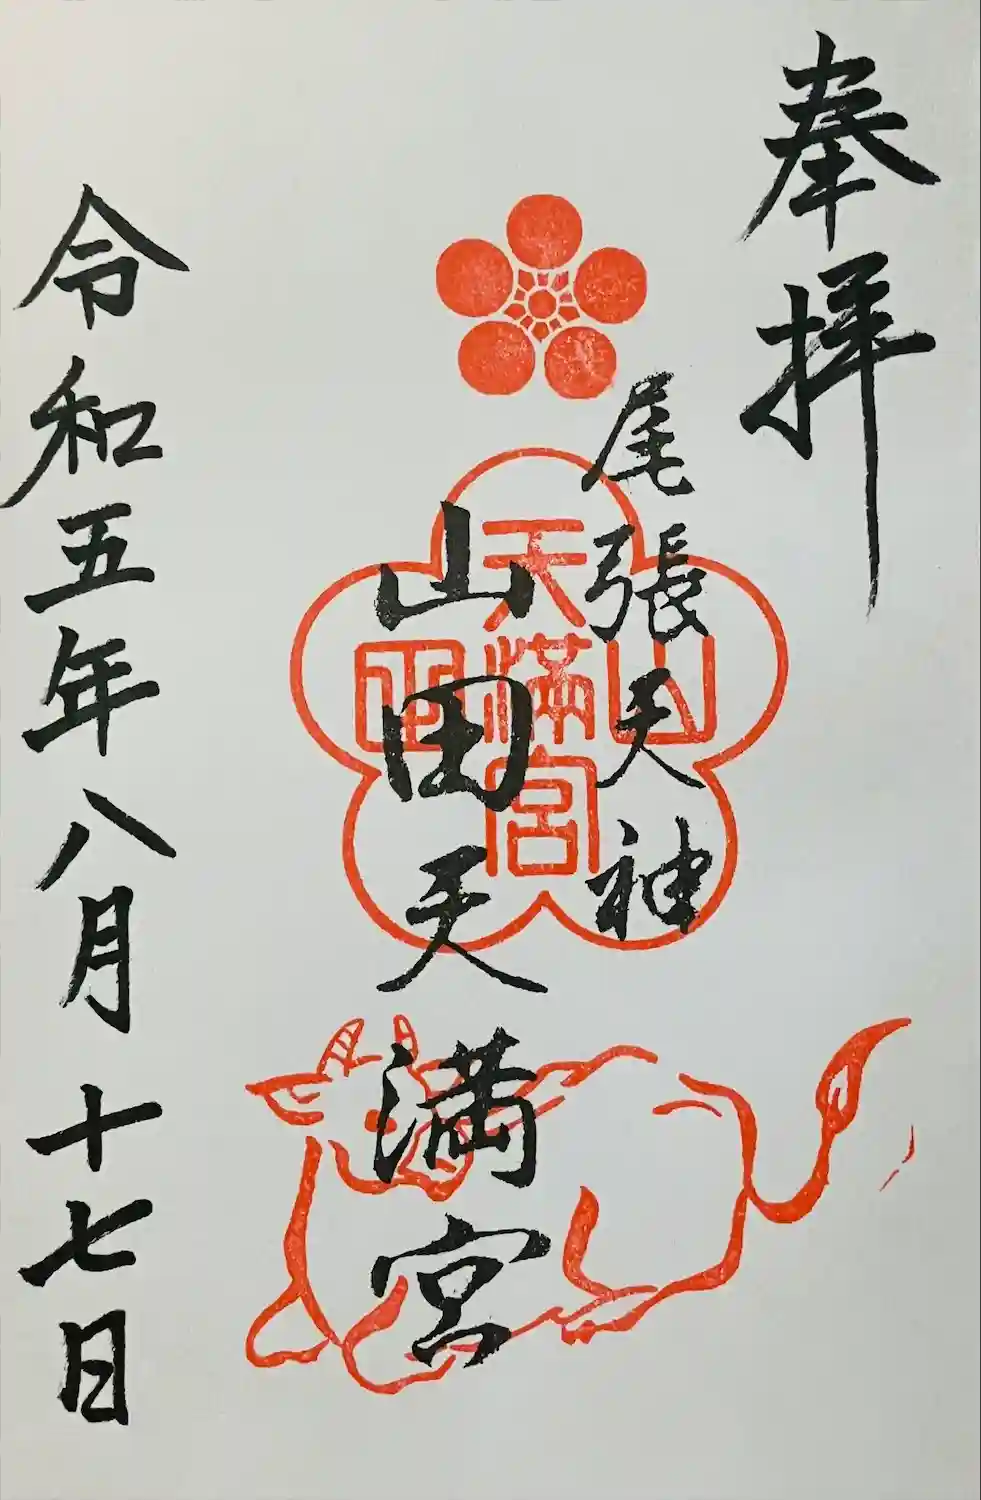 奉拝
尾張天神
山田天満宮
山田
天満宮
令和五年八月十七日